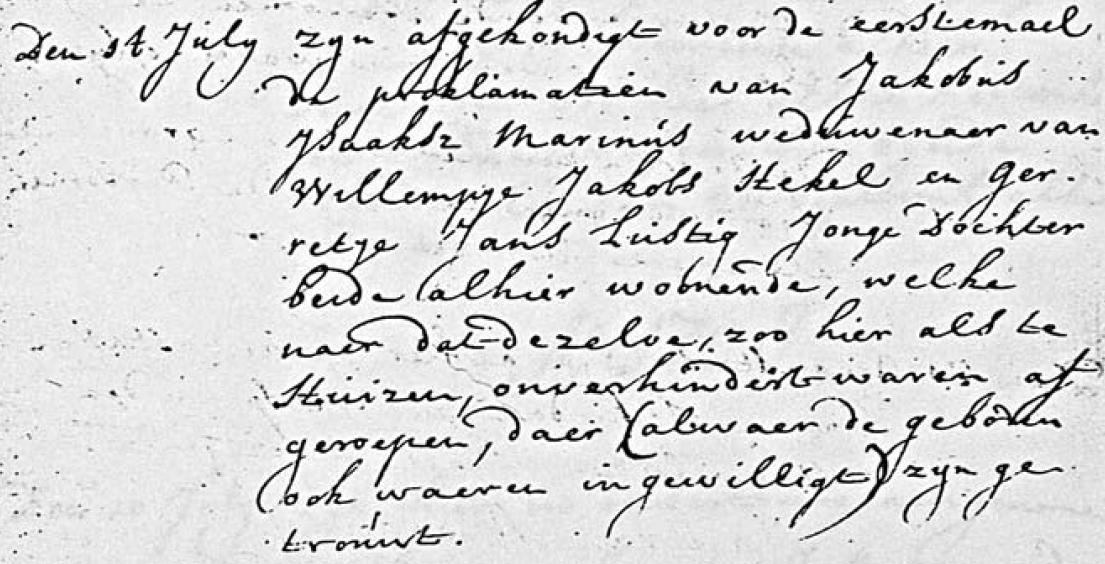 Den 1t July zyn afgekondigt voor de eerstemael
de proklamatien van Jakobus
Jsaaksz Marinus weduwenaer van
Willempje Jakobs Hekel en Ger.
retje Jans Lustig Jonge Dochter
beide alhier woonende, welke
naer dat dezelve, zoo hier als te
Huizen, onverhindert waren af
geroepen, daer (alwaer de geboden
ook waeren ingewilligt) zyn ge
trouwt.